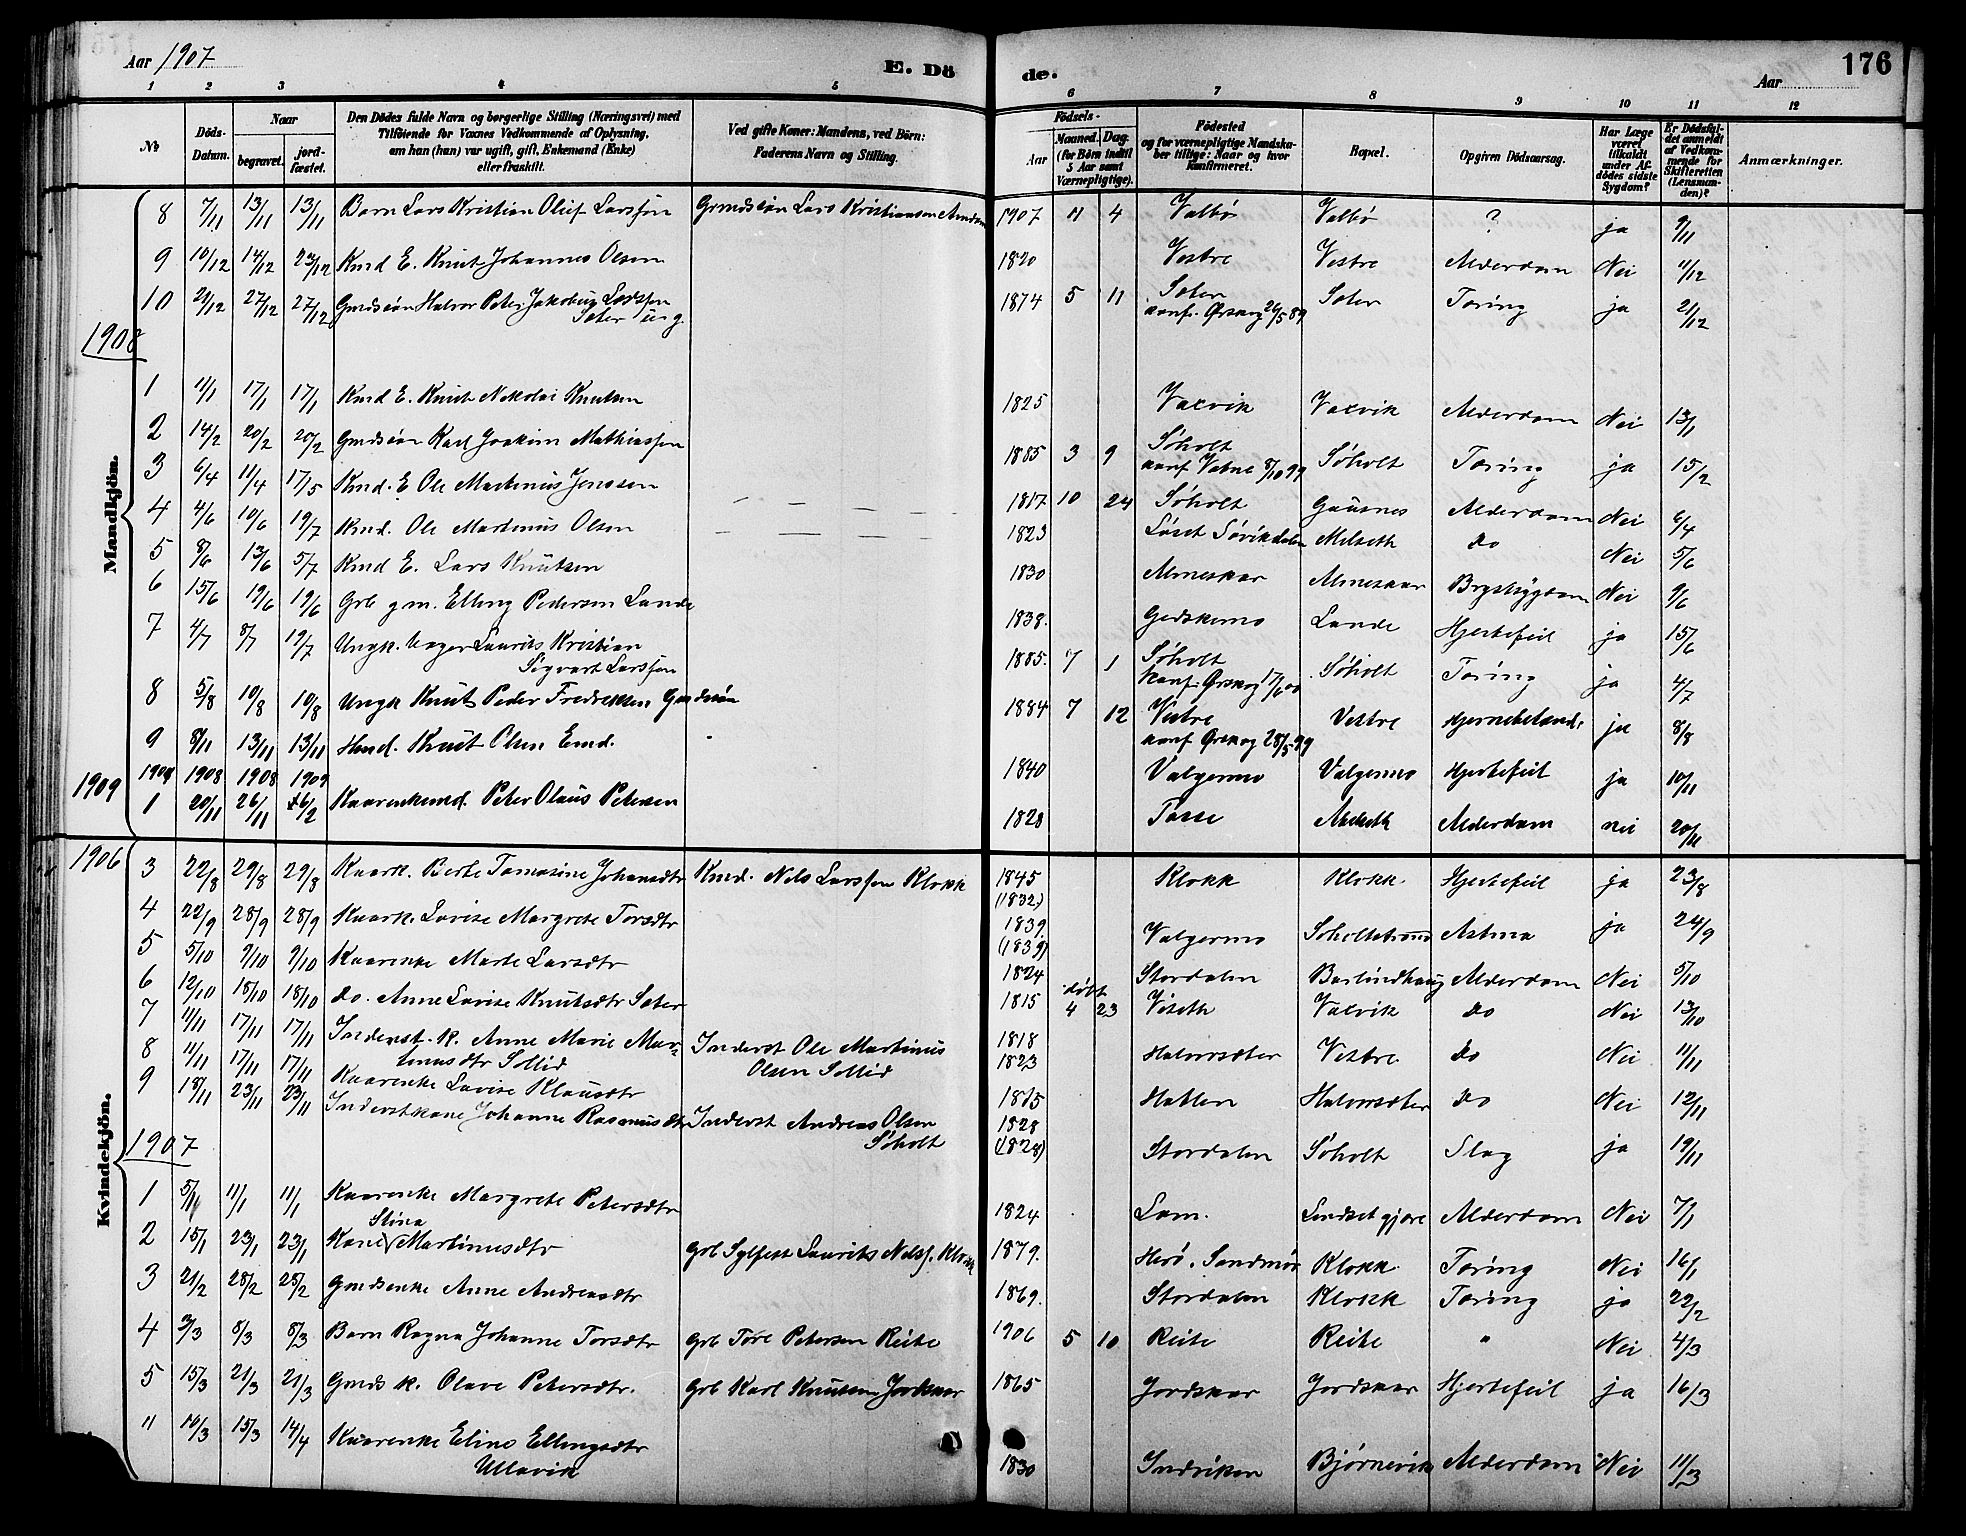 Aar 1907.
E. Dö
de.
Aar
176
1 2 3 4 5 6 7 8 9 10 11 12
No
Döds-Datum.
Naar
begravet.
jord-fæstet.
Den Dödes fulde Navn og borgerlige Stilling (Næringsvei) med
Tilföiende for Voxnes Vedkommende af Oplysning,
om han (hun) var ugift, gift, Enkemand (Enke)
eller fraskilt.
Ved gifte Koner: Mandens, ved Börn:
Faderens Navn og Stilling.
Födsels-
Aar
Maaned. Dag.
(for Börn indtil
5 Aar samt
Værnepligtige).
Födested
og for værnepligtige Mandska-
ber tillige: Naar og hvor
Konfirmeret.
Bopæl.
Opgiven Dödsaarsag.
Har Læge
været
tilkaldt
under Af-
dödes sidste
Sygdom?
Er Dödsfal-
det anmeldt
af Vedkom-
mende for
Skifteretten
(Lensman-
den)?
Anmærkninger.
Mandkjön.
8 7/11 13/11 13/11 Barn Lars Kristian Oluf Larssen Grmdssön Lars Kristiansen 1907 11 4 Valbø Valbø ? ja 9/11
9 10/12 14/12 23/12 Kmd E. Knut Johannes Olsen 1820 Vestre Vestre Alderdom Nei 11/12
10 21/12 27/12 27/12 Gmdssön Halvor Peter Jakobug Larssen 1874 5 11 Sæter Sæter Tæring ja 21/12
Sæter ug. konf. Ørskog 26/5 89
1908
1 11/1 17/1 17/1 Kmd E. Knut Nikolai Knutsen 1825 Vaxvik Vaxvik Alderdom Nei 13/1
2 14/2 20/2 20/2 Gmdssön Karl Joakim Mathiassen 1885 3 9 Søholt Søholt Tæring ja 15/2
konf Vatne 8/10 99
3 6/4 11/4 17/5 Kmd. E Ole Martinus Jonssen 1817 10 24 Søholt Gausnes Alderdom Nei 6/4
4 4/6 10/6 19/7 Kmd. Ole Martinus Olsen 1823 Løset Sørikdalen Melseth do Nei 5/6
5 8/6 13/6 5/7 Kmd E. Lars Knutsen 1830 Almeskar Almeskaar Brystsygdom Nei 9/6
6 15/6 19/6 19/6 Grb g m. Elling Pedersen Lande 1838. Gjedskemo Lande Hjertefeil ja 15/6
7 4/7 8/7 19/7 Ungk. Laurits Kristian 1885. 7 1 Søholt Søholt Tæring ja 4/7
Sigvart Larssen Konf. Ørskog 17/6 00
8 5/8 10/8 10/8 Ungk Knut Peder Fredriksen Gmdssön 1884 7 12 Vestre Vestre ja 8/8
konf Ørskog 28/5 99
9 8/11 13/11 13/11 Hmd. Knut Olsen Emd. 1840 Valgermo Valgermo Hjertefeil ja 10/11
1909
1908 1908 1908 1909
1 20/11 26/11 26/2 Kaarenkemd. Peter Olaus Petersen 1828 Tasse Aadseth Alderdom nei 20/11
Kvindekjön.
1906
3 22/8 29/8 29/8 Kaark. Berte Tomasine Johansdtr Kmd. Nils Larssen Klokk 1845 Klokk Klokk Hjertefeil ja 23/8
(1832)
4 22/9 28/9 28/9 Kaark. Lovise Margrete Torsdtr 1839. Valgermo Søholtstrand Astma ja 24/9
(1839)
5 5/10 9/10 9/10 Kaarenke Marte Larsdtr 1824 Stordalen Barlindhaug Alderdom Nei 5/10
6 12/10 18/10 18/10 do. Anne Lovise Knutsdtr Sæter 1815 døbt 4 23 Viseth Vaxvik do Nei 13/10
7 11/11 17/11 17/11 Inderst. k. Anne Marie Mar- Inderst Ole Martinus 1818 Halvorsæter Vestre do Nei 11/11
tinusdtr Sollid Olsen Sollid 1823
8 11/11 17/11 17/11 Kaarenke Lovise Klausdtr 1815 Hatlen Halvorsæter do Nei 12/11
9 18/11 23/11 23/11 Inderstkone Johanne Rasmusdtr Inderst Andreas Olsen 1828 Stordalen Søholt Slag ja 19/11
Søholt (1828)
1907
1 5/1 11/1 11/1 Kaarenke Margrete Petersdtr 1824 Lam. Lindsetgjøre Alderdom Nei 7/1
2 15/1 23/1 23/1 Kone Stina Martinusdtr Grb Sylfest Laurits Nilss. Klokk 1879. Herø. Søndmør Klokk Tæring Nei 16/1
3 21/2 28/2 28/2 Gmdsenke Anne Andreasdtr 1869. Stordalen Klokk Tæring ja 22/2
4 3/3 8/3 8/3 Barn Ragna Johanne Torsdtr Grb Tore Petersen Reite 1906 5 10 Reite Reite " Nei 4/3
5 15/3 21/3 21/3 Gmds k. Olave Petersdtr. Grb Karl Knutsen Jordskar 1865 Jordskar Jordskar Hjertefeil ja 16/3
" 10/3 15/3 14/4 Kaarenke Eline Ellingsdtr 1830 Indviken Bjørnevik Alderdom Nei 11/3
Ullavik